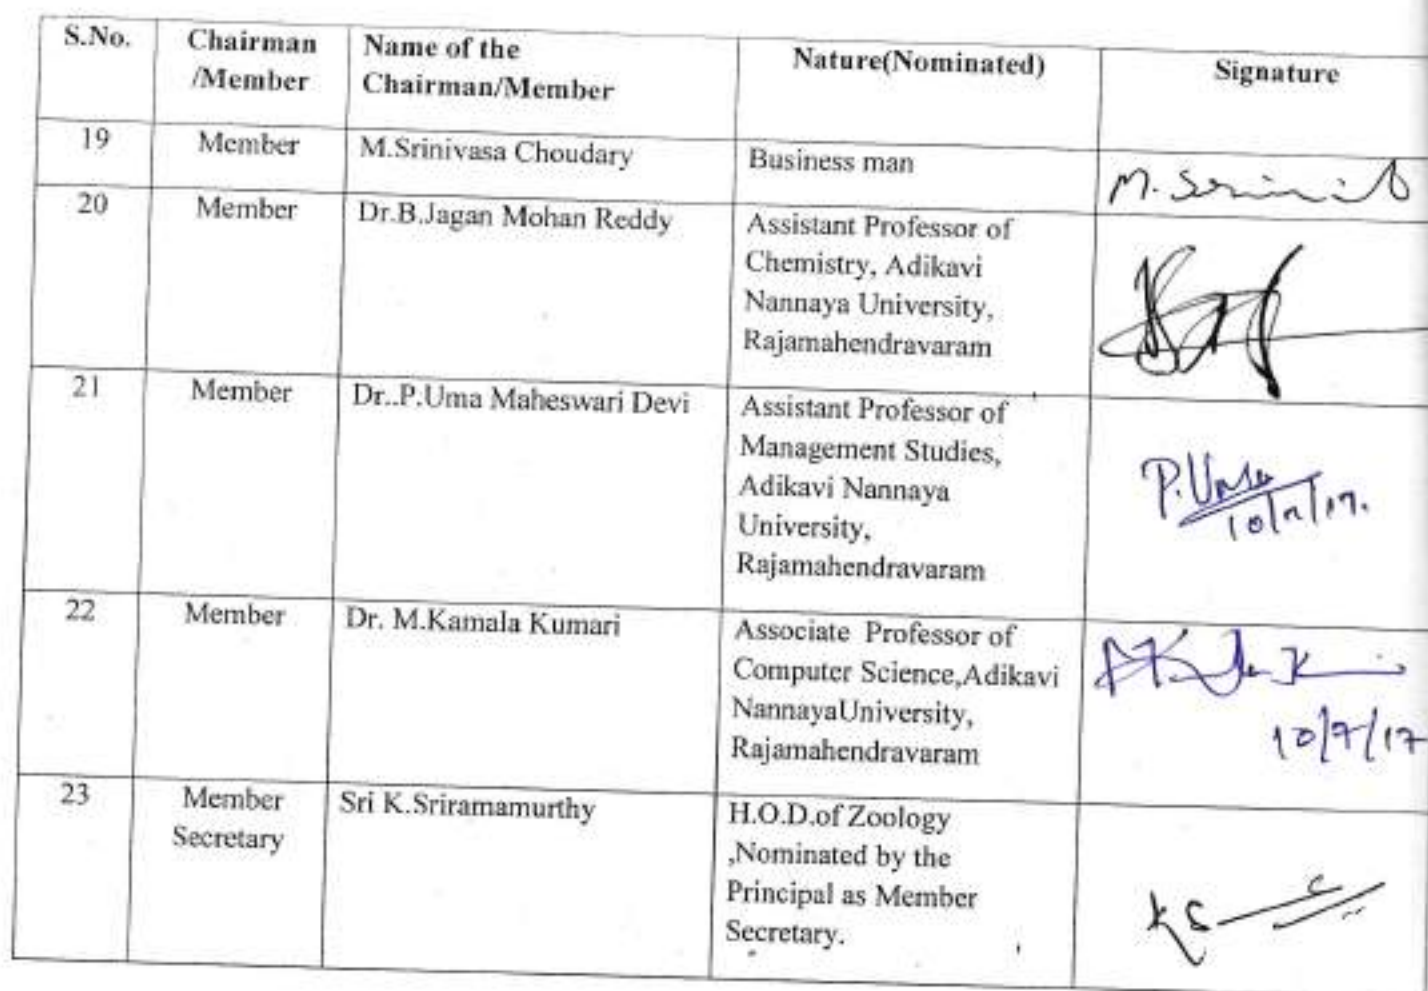 S.No.
Chairman
/Member
Name of the
Chairman/Member
Nature(Nominated)
Signature
19
Member
M.Srinivasa Choudary
Business man
M.
20
Member
Dr.B.Jagan Mohan Reddy
Assistant Professor of
Chemistry, Adikavi
Nannaya University,
Rajamahendravaram
21
Member
Dr..P.Uma Maheswari Devi
Assistant Professor of
Management Studies,
Adikavi Nannaya
University,
Rajamahendravaram
P.Uma
22
Member
Dr. M.Kamala Kumari
Associate Professor of
Computer Science,Adikavi
NannayaUniversity,
Rajamahendravaram
10/7/17
23
Member
Secretary
Sri K.Sriramamurthy
H.O.D.of Zoology
,Nominated by the
Principal as Member
Secretary.